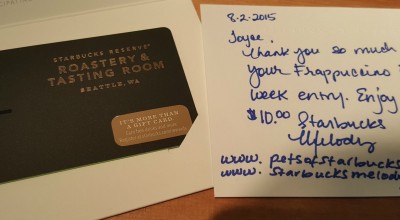 STARBUCKS RESERVE
ROASTERY &
TASTING ROOM
SEATTLE, WA
IT'S MORE THAN
A GIFT CARD.
8-2-2015
Joyce,
Thank you so much
your Frappuccino
week entry. Enjoy
$10.00 Starbucks
Melody
www. petsofstarbucks
www. starbucksmelody